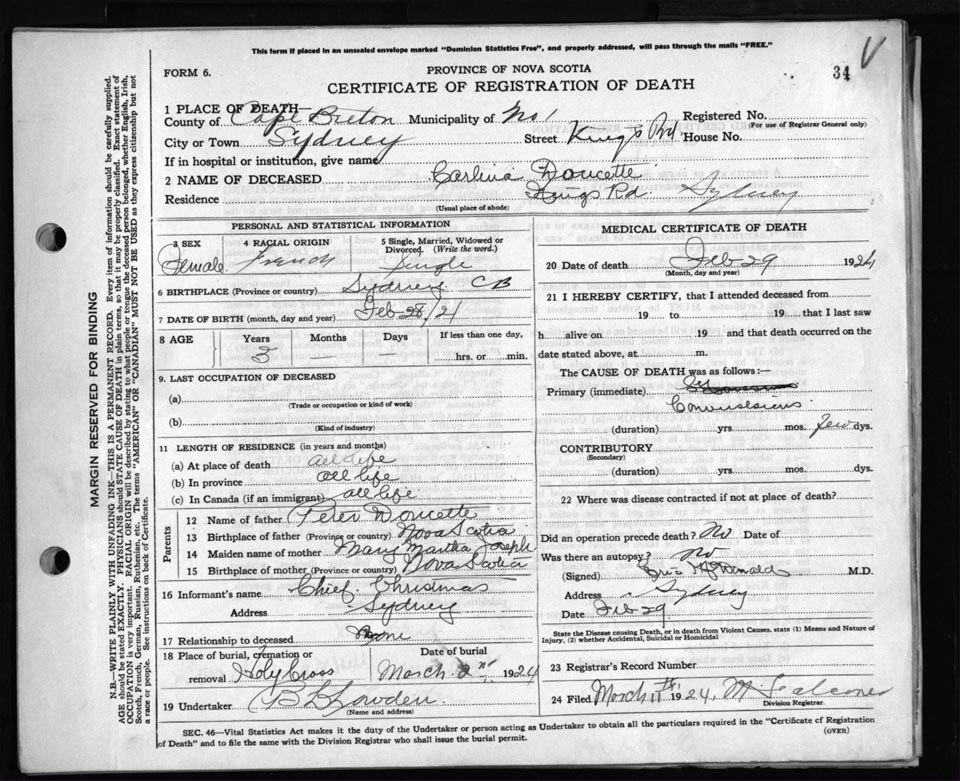 This form if placed in an unsealed envelope marked "Dominion Statistics Free", and properly addressed, will pass through the mails "FREE."
FORM 6.
PROVINCE OF NOVA SCOTIA
34
CERTIFICATE OF REGISTRATION OF DEATH
1 PLACE OF DEATH—
County of Cape Breton Municipality of No 1 Registered No.
(For use of Registrar General only)
City or Town Sydney Street Kings Rd House No.
If in hospital or institution, give name
2 NAME OF DECEASED Carlina Doucette
Residence Kings Rd. Sydney
(Usual place of abode)
PERSONAL AND STATISTICAL INFORMATION
3 SEX 4 RACIAL ORIGIN 5 Single, Married, Widowed or Divorced. (Write the word.)
Female. French Single
6 BIRTHPLACE (Province or country) Sydney CB
7 DATE OF BIRTH (month, day and year) Feb 28/21
8 AGE Years Months Days If less than one day,
3 — — hrs. or min.
9. LAST OCCUPATION OF DECEASED
(a)
(Trade or occupation or kind of work)
(b)
(Kind of industry)
11 LENGTH OF RESIDENCE (in years and months)
(a) At place of death all life
(b) In province all life
(c) In Canada (if an immigrant) all life
Parents
12 Name of father Peter Doucette
13 Birthplace of father (Province or country) Nova Scotia
14 Maiden name of mother Mary Martha Joseph
15 Birthplace of mother (Province or country) Nova Scotia
16 Informant's name Chief Christmas
Address Sydney
17 Relationship to deceased None
18 Place of burial, cremation or removal Holy Cross
Date of burial March 2nd 1924
19 Undertaker
(Name and address)
MEDICAL CERTIFICATE OF DEATH
20 Date of death Feb 29 1924
(Month, day and year)
21 I HEREBY CERTIFY, that I attended deceased from
19 to 19 that I last saw
h alive on 19 and that death occurred on the
date stated above, at m.
The CAUSE OF DEATH was as follows:—
Primary (immediate)
Convulsions
(duration) yrs. mos. few dys.
CONTRIBUTORY
(Secondary)
(duration) yrs. mos. dys.
22 Where was disease contracted if not at place of death?
Did an operation precede death? No Date of
Was there an autopsy? No
(Signed) M.D.
Address Sydney
Date Feb 29
State the Disease causing Death, or in death from Violent Causes, state (1) Means and Nature of Injury, (2) whether Accidental, Suicidal or Homicidal
23 Registrar's Record Number
24 Filed March 11th, 1924, M Falconer
Division Registrar.
SEC. 46—Vital Statistics Act makes it the duty of the Undertaker or person acting as Undertaker to obtain all the particulars required in the "Certificate of Registration
of Death" and to file the same with the Division Registrar who shall issue the burial permit.
(OVER)
MARGIN RESERVED FOR BINDING
N.B.—WRITE PLAINLY WITH UNFADING INK—THIS IS A PERMANENT RECORD. Every item of information should be carefully supplied.
AGE should be stated EXACTLY. PHYSICIANS should STATE CAUSE OF DEATH in plain terms, so that it may be properly classified. Exact statement of
OCCUPATION is very important. RACIAL ORIGIN will be described by stating to what people or tongue the deceased person belonged, whether English, Irish,
Scotch, French, German, Russian, Ruthenian, etc. The terms "AMERICAN" OR "CANADIAN" MUST NOT BE USED as they express citizenship but not
a race or people. See instructions on back of Certificate.